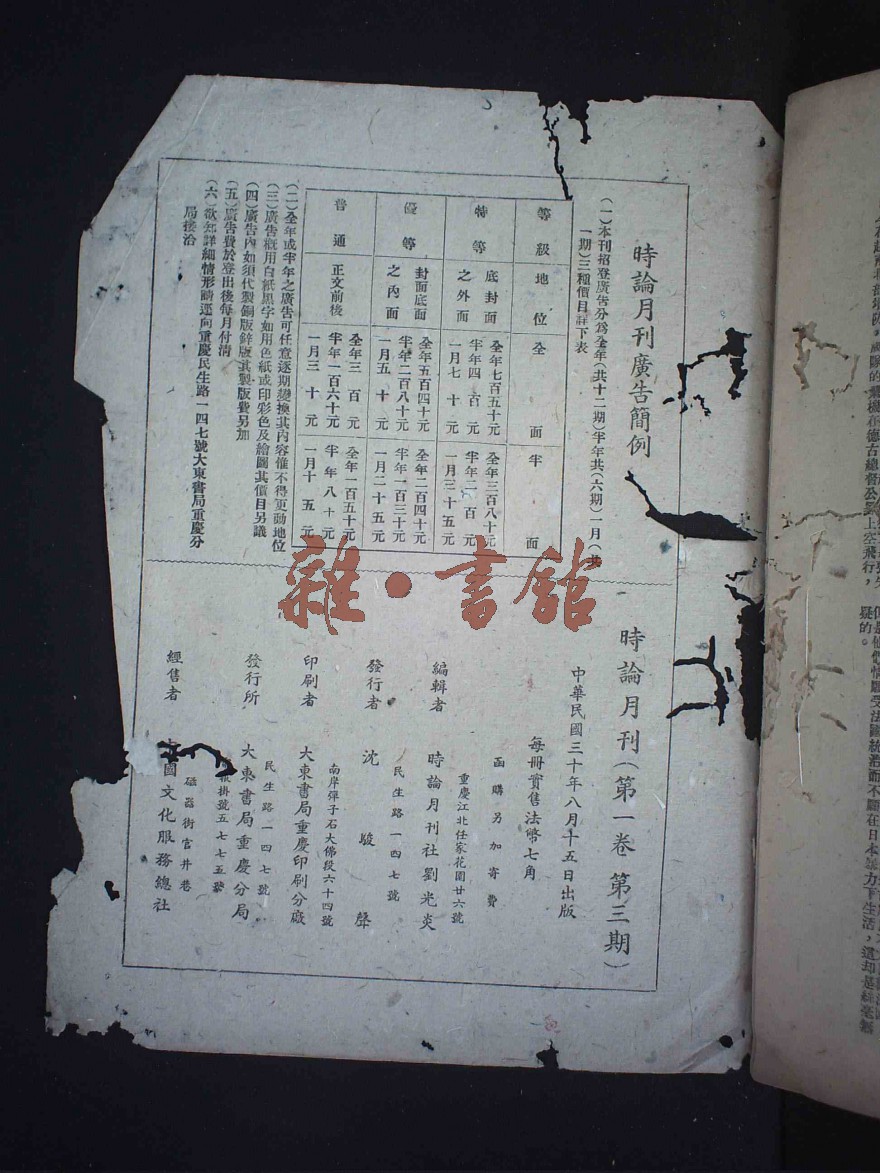 時論月刊廣告簡例
（一）本刊招登廣告分為全年（共十二期）半年共（六期）一月（共
一期）三種價目詳下表
等級 地位 全面 半面
特等 底封面之外面 全年七百五十元 半年四百元 一月七十元 全年三百八十元 半年二百元 一月三十五元
優等 封面底面之內面 全年五百四十元 半年二百八十元 一月五十元 全年二百四十元 半年一百三十元 一月二十五元
普通 正文前後 全年三百元 半年一百六十元 一月三十元 全年一百五十元 半年八十元 一月十五元
（二）全年或半年之廣告可任意逐期變換其內容惟不得更動地位
（三）廣告概用白紙黑字如用色紙或印彩色及繪圖其價目另議
（四）廣告內如須代製銅版鋅版其製版費另加
（五）廣告費於登出後每月付清
（六）欲知詳細情形請逕向重慶民生路一四七號大東書局重慶分
局接洽
時論月刊（第一卷 第三期）
中華民國三十年八月十五日出版
每冊實售法幣七角
函購另加寄費
編輯者 時論月刊社劉光炎
重慶江北任家花園廿六號
發行者 沈駿聲
民生路一四七號
印刷者 大東書局重慶印刷分廠
南岸彈子石大佛段六十四號
發行所 大東書局重慶分局
民生路一四七號
掛號五七七五
經售者 國文化服務總社
磁器街官井巷
雜·書館